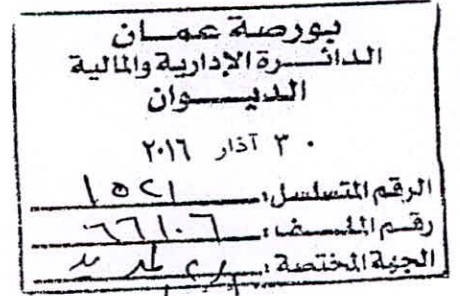 بورصة عمان
الدائرة الإدارية والمالية
الديوان
٣٠ آذار ٢٠١٦
الرقم المتسلسل: ١٥٢١
رقم الملف: ٦٦١٠٦
الجهة المختصة: